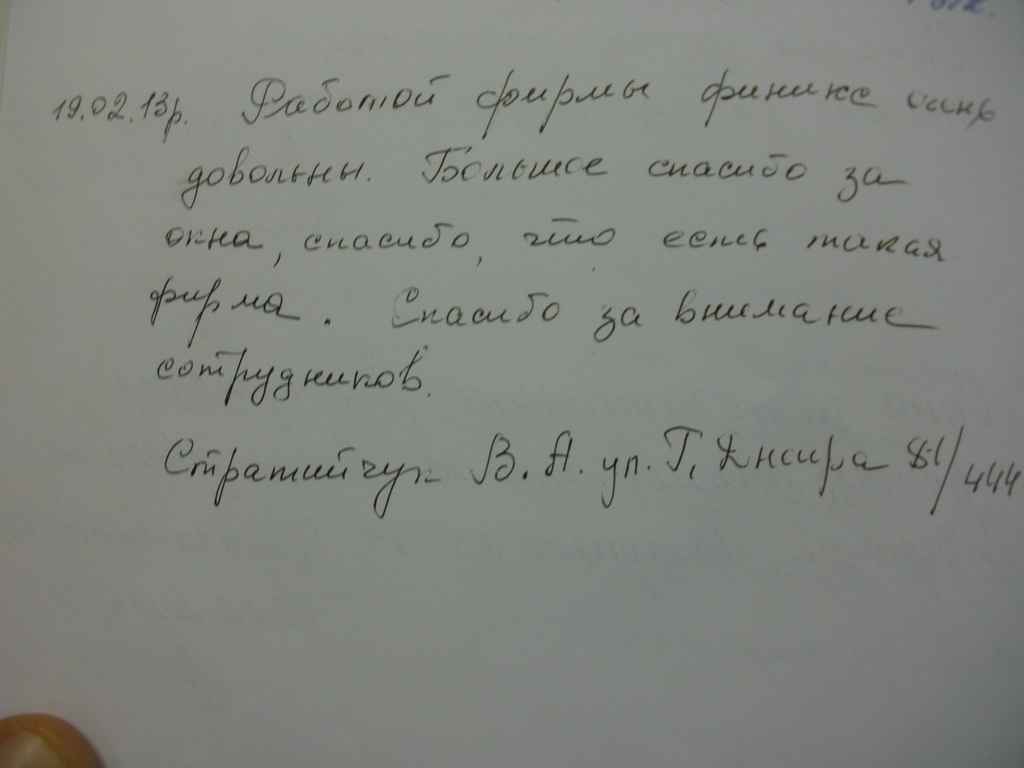 19.02.13р. Работой фирмы финикс очень
довольны. Большое спасибо за
окна, спасибо, что есть такая
фирма. Спасибо за внимание
сотрудников.
В. А. ул. Г. 81/444